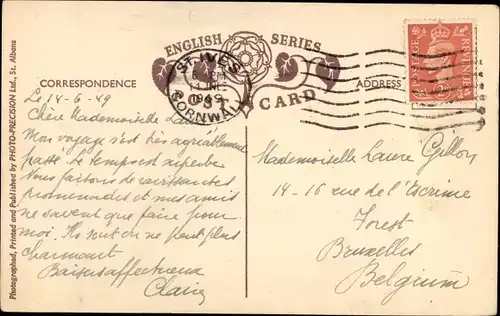 ENGLISH SERIES
POST CARD
CORRESPONDENCE
ADDRESS
ST. IVES
14 JNE
1949
CORNWALL
POSTAGE REVENUE
Photographed, Printed and Published by PHOTO-PRECISION Ltd., St. Albans
Le 14-6-49
Chère Mademoiselle
Mon voyage s'est très agréablement
passé. Le temps est superbe
Nous faisons de ravissantes
promenades et mes amis
ne savent que faire pour
moi. Ils sont on ne peut plus
charmant
Baisers affectueux
Claire
Mademoiselle Laure Gillon
14-16 rue de l'Escrime
Forest
Bruxelles
Belgium